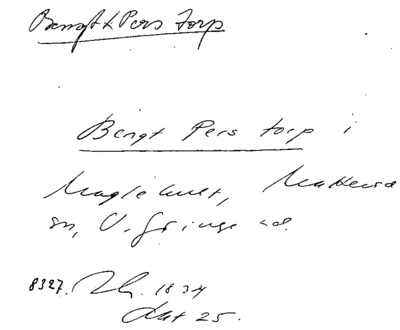 Bengt Pers torp
Bengt Pers torp i
Maglehult, Matteröds
sn, V. Göinge hd.
8327. 1834
Lat 25.